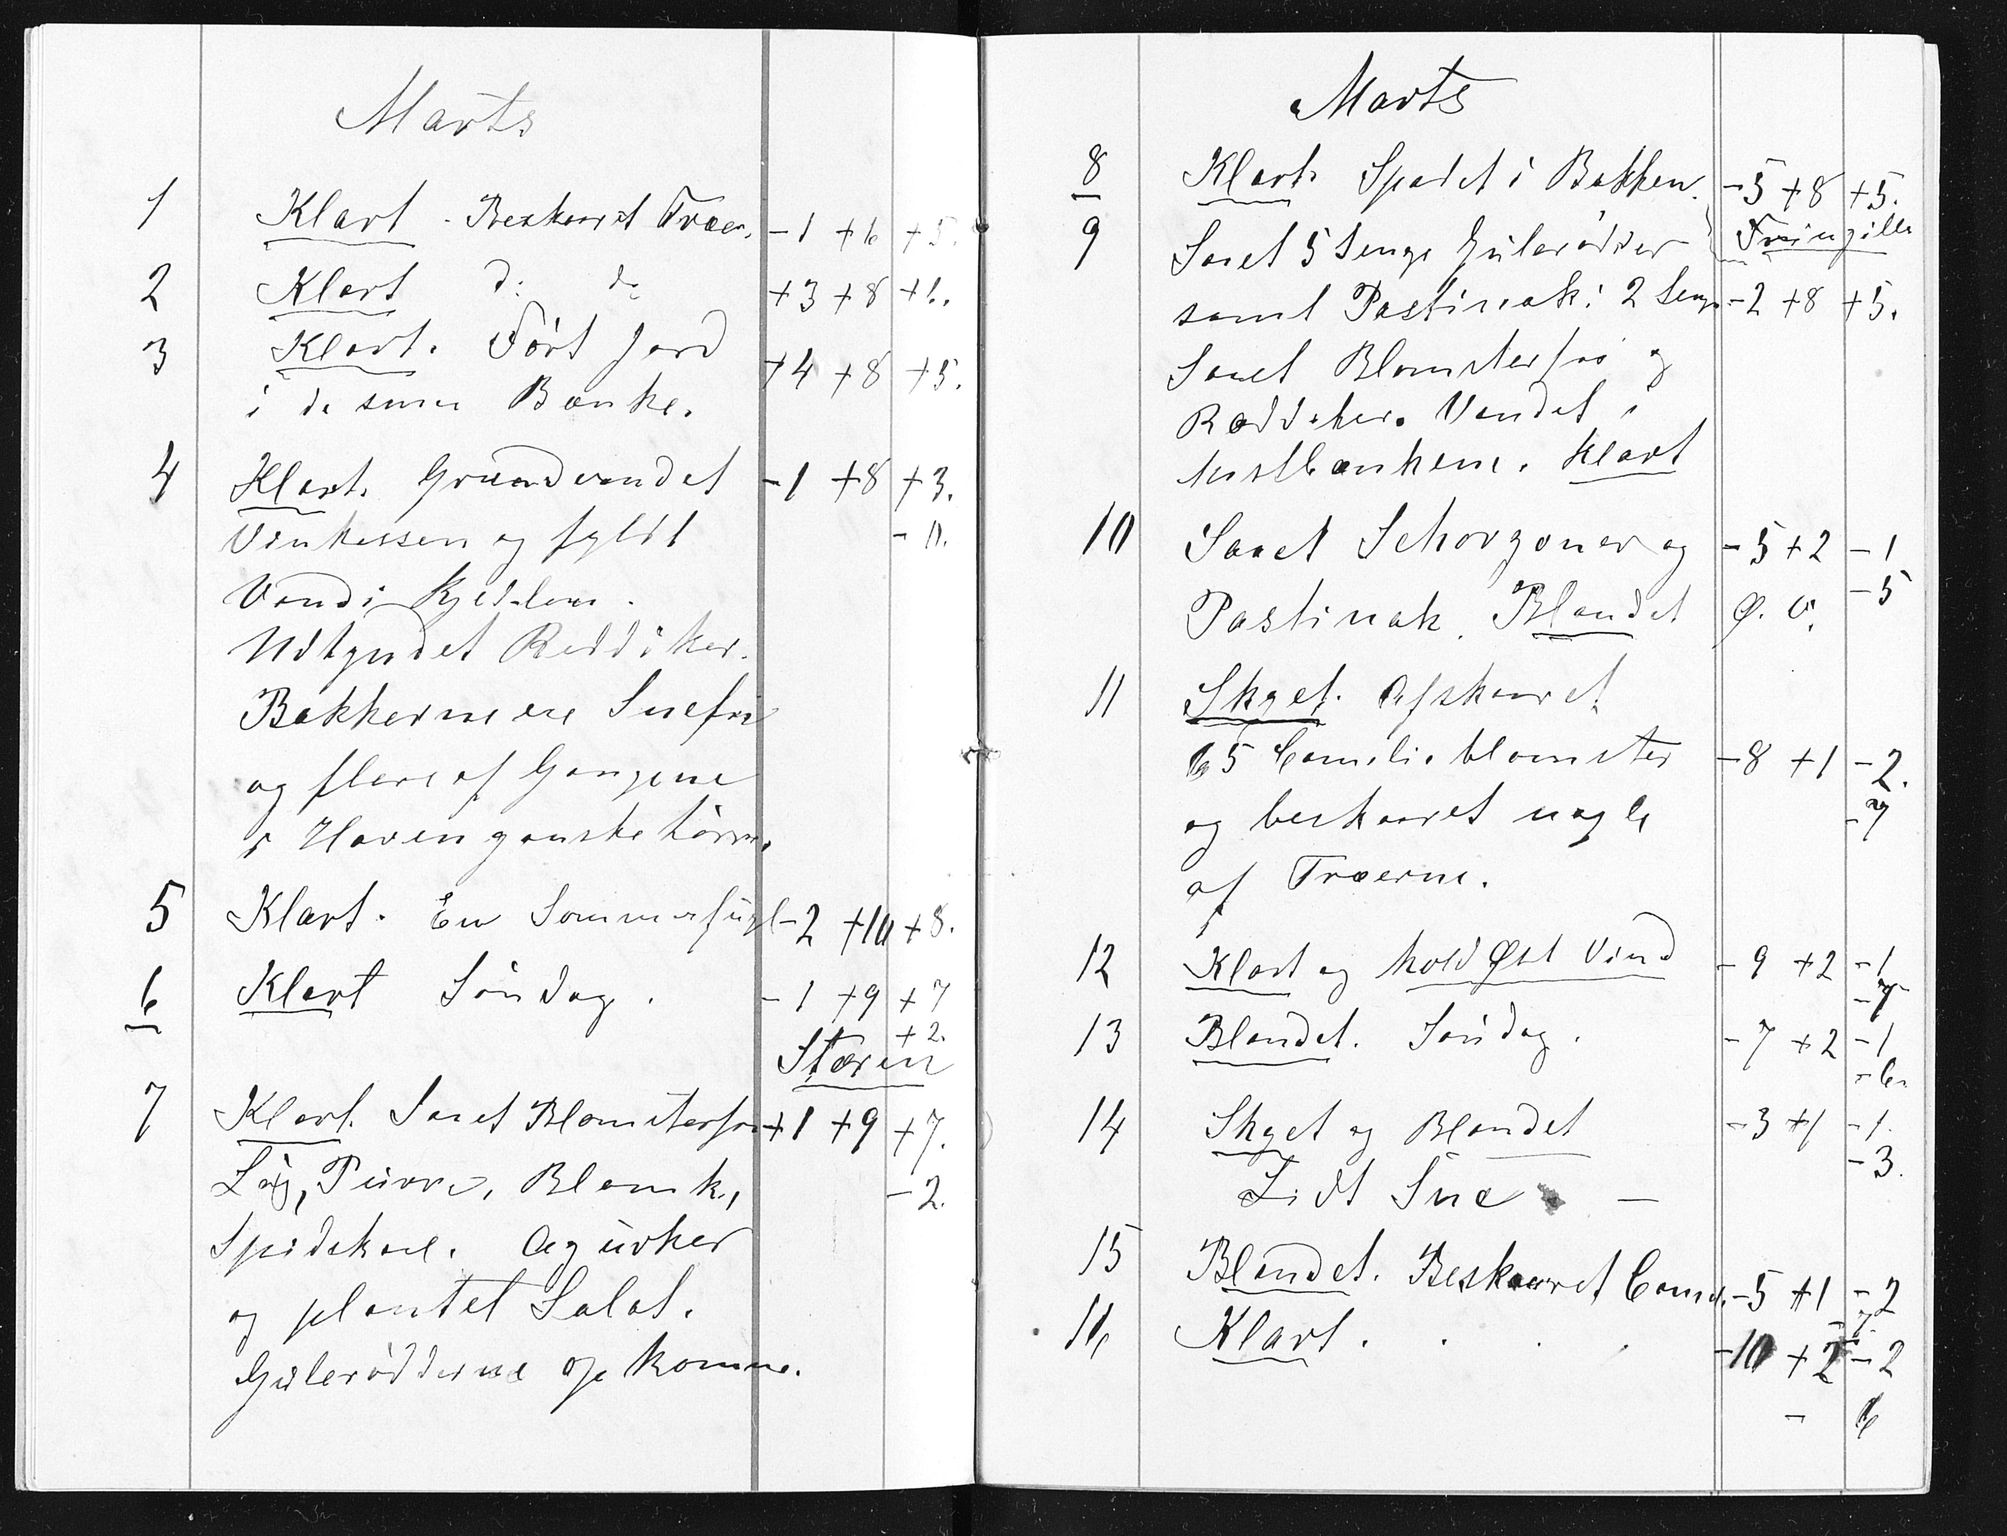 Marts
1 Klart. Beskaaret Træer. -1 +6 +5.
2 Klart do do +3 +8 +6.
3 Klart. Kørt Jord +4 +8 +5.
i de smaa Bænke.
4 Klart. Grundvandet -1 +8 +3.
Vinkassen og fyldt -0.
Vand i Kjedlen.
Udtyndet Reddiker.
Bakkerne ere Snefri
og flere af Gangene
i Haven ganske tørre.
5 Klart. En Sommerfugl -2 +10 +8.
6 Klart Søndag. -1 +9 +7
+2.
Stæren
7 Klart. Saaet Blomsterfrø +1 +9 +7.
Løg, Purre, Blomk, -2.
Spidskaal. Agurker
og plantet Salat.
Gulerødderne opkomne.
Marts
8 Klart. Spadet i Bakken. -5 +8 +5.
9 Saaet 5 Senge Gulerødder Fringille
samt Pastinak: 2 Senge -2 +8 +5.
Saaet Blomsterfrø og
Raddiker. Vandet i
Mistbænkene. Klart
10 Saaet Schorzoner og -5 +2 -1
Pastinak. Blandet Ø. V. -5
11 Skyet. Afskaaret
65 Camelieblomster -8 +1 -2.
og beskaaret nogle -7
af Træerne.
12 Klart og kold Øst Vind -9 +2 -1
-7
13 Blandet. Søndag. -7 +2 -1
-6.
14 Skyet og Blandet -3 +1 -1.
Lidt Sne - -3.
15 Blandet. Beskaaret Camel. -5 +1 -2
-7
16 Klart. -10 +2 -2
- 6